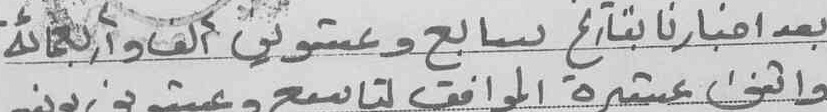 بعد اخبارنا بتاريخ سابع وعشرين ألف وأربعمائة
واثنين عشرة الموافق لتاسع وعشرين يونيو